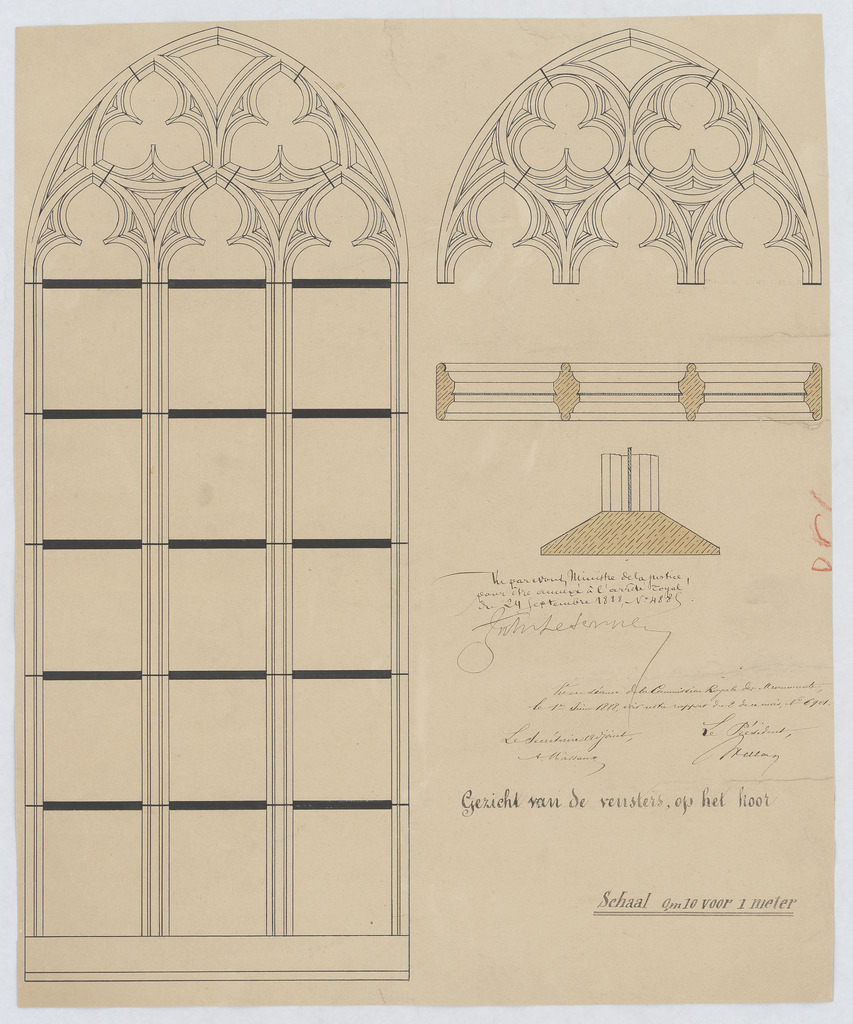 Vu par nous, Ministre de la justice,
pour être annexé à l'arrêté royal
du 24 Septembre 1888 N°
Vu en séance de la Commission Royale des Monuments,
le 1er Juin 1888, voir notre rapport du 2 de ce mois, N°
Le Secrétaire adjoint,
Le Président,
A Massaux
Gezicht van de vensters, op het koor
Schaal 0m10 voor 1 meter